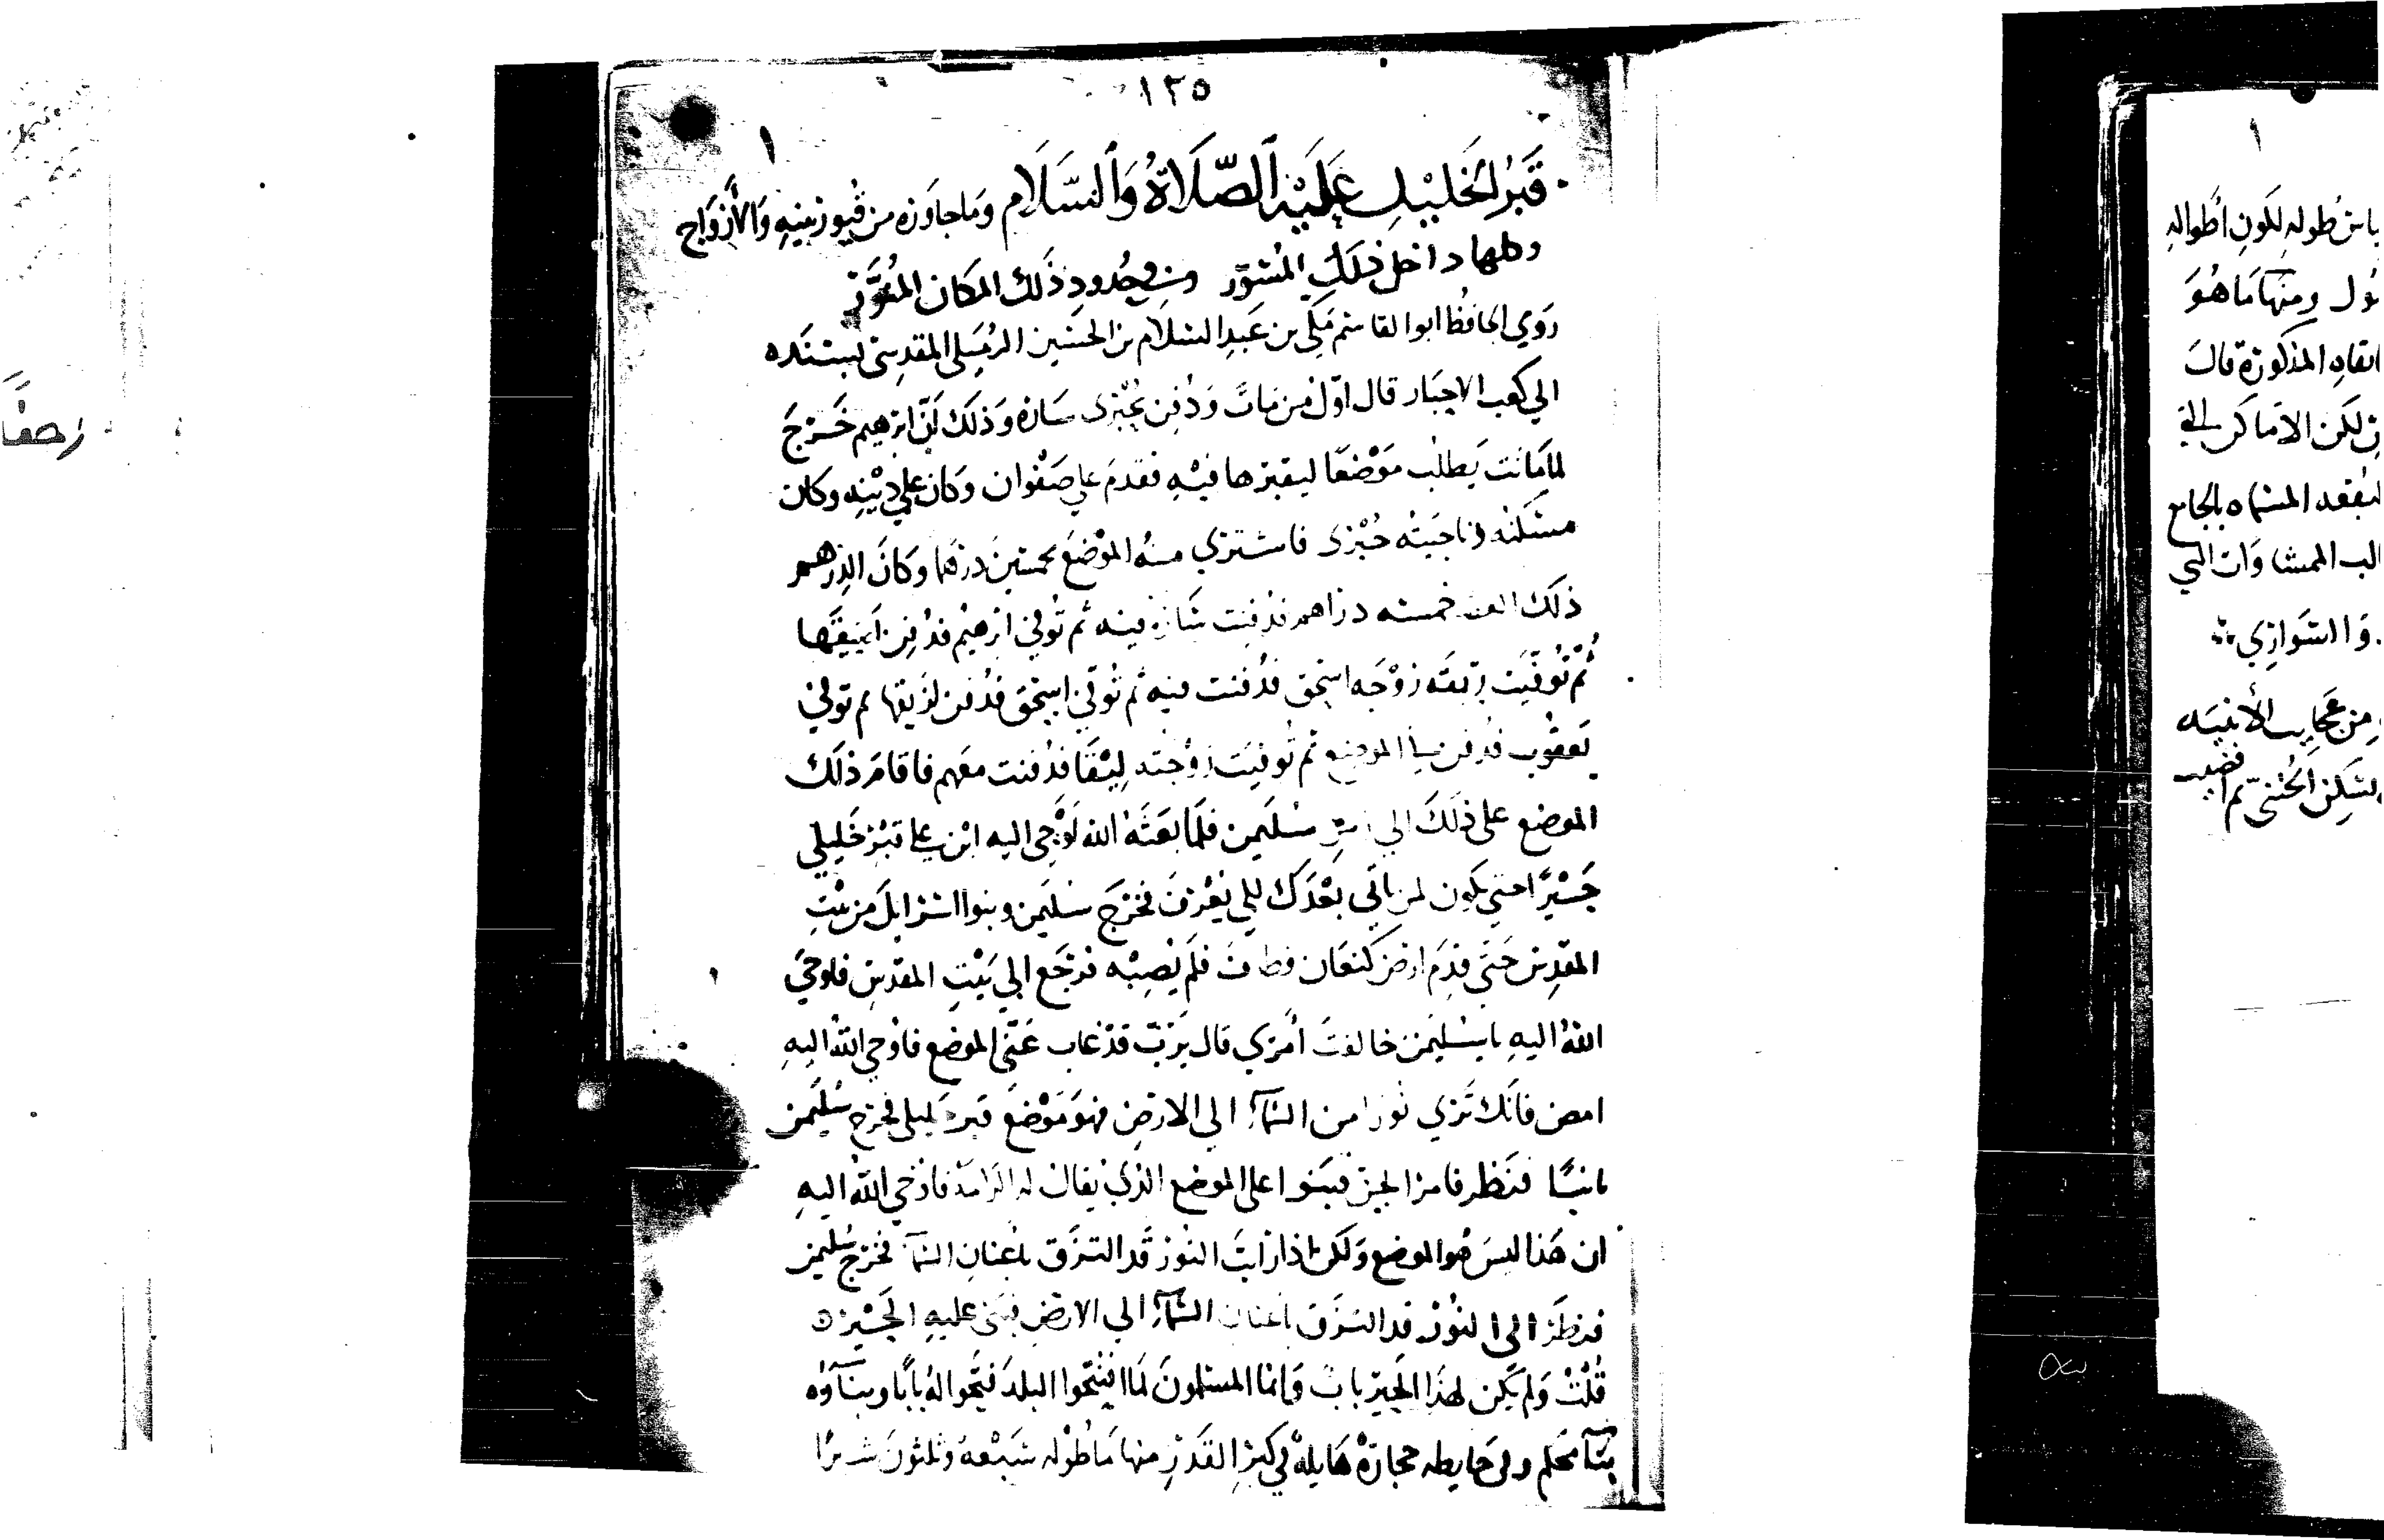 ١٣٥
١
قَبْرُ الخَلِيْلِ عَلَيْهِ الصَّلَاةُ وَالسَّلَام وما جاوره من قبور بنيه والأزواج
وكلها داخل ذلك المسوّر وفي حدود ذلك المكان المنوَّر
روي الحافظ ابوا القاسم مكي بن عبد السلام بن الحسين الرميلي المقدسي بسنده
الي كعب الاحبار قال اوّل من مات ودفن بحبرى ساره وذلك أنّ ابرهيم خرج
لما ماتت يطلب موضعًا ليقبرها فيه فقدم علي صفوان وكان علي دينه وكان
مسكنه ناحيته حبرى فاشترى منه الموضع بخمسين درهما وكان الدرهم
ذلك خمسه دراهم فدفنت ساره فيه ثم توفي ابرهيم فدفن لصيقها
ثم توفيت ربقه زوجه اسحق فدفنت فيه ثم توفي اسحق فدفن لزيقها ثم توفي
يعقوب فدفن الموضع ثم توفيت زوجته ليقا فدفنت معهم فاقام ذلك
الموضع على ذلك الي سليمن فلما بعثه الله اوحى اليه ابن علي قبر خليلي
حَيْرًا حتي يكون لمن ياتي بعدك لكي يعرف فخرج سليمن وبنوا اسرايل من بيت
المقدس حتى قدم ارض كنعان فطاف فلم يصبه فرجع الي بيت المقدس فاوحي
الله اليه يا سليمن خالفت أمري قال يرب قد غاب عنّي الموضع فاوحي الله اليه
امض فانك تري نورا من السمآء الي الارض فهو موضع قبر خليلي فخرج سليمن
ثانيًا فنظر فامر الجن فبنوا على الموضع الذي يقال له الرامة فاوحي الله اليه
ان هذا ليس هو الموضع ولكن اذا رايت النور قد التزق باعنان السمآء فخرج سليمن
فنظر الى النور قد التزق باعنان السمآء الي الارض فبنى عليه الحَيْر ه
قلت ولم يكن لهذا الحير باب وانما المسلمون لما افتتحوا البلد فتحوا له بابًا وبناؤه
بنآء محكم وفي حايطه حجارة هايلة في كبر القدر منها ما طوله سبعة وثلثون شبرًا
١
طوله لكون أطواله
ومنها ما هو
المذكورة قالت
لكن الاماكن التي
المسماه بالجامع
التي
والسواري
من عجايب الأبنيه